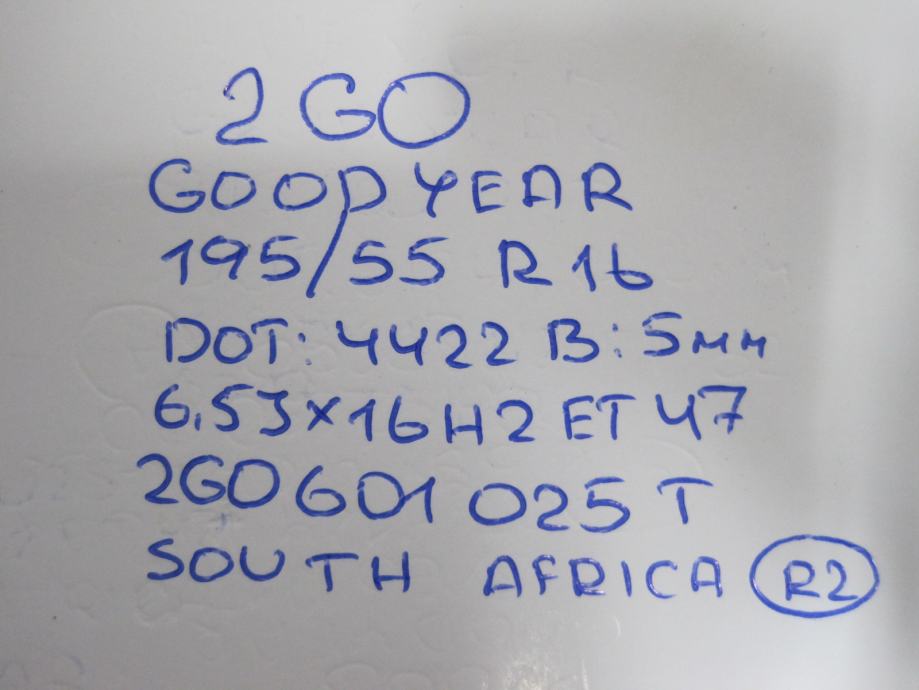 2GO
GOODYEAR
195/55 R16
DOT: 4422 B: 5mm
6.5J×16H2 ET 47
2GO601 025 T
SOUTH AFRICA R2